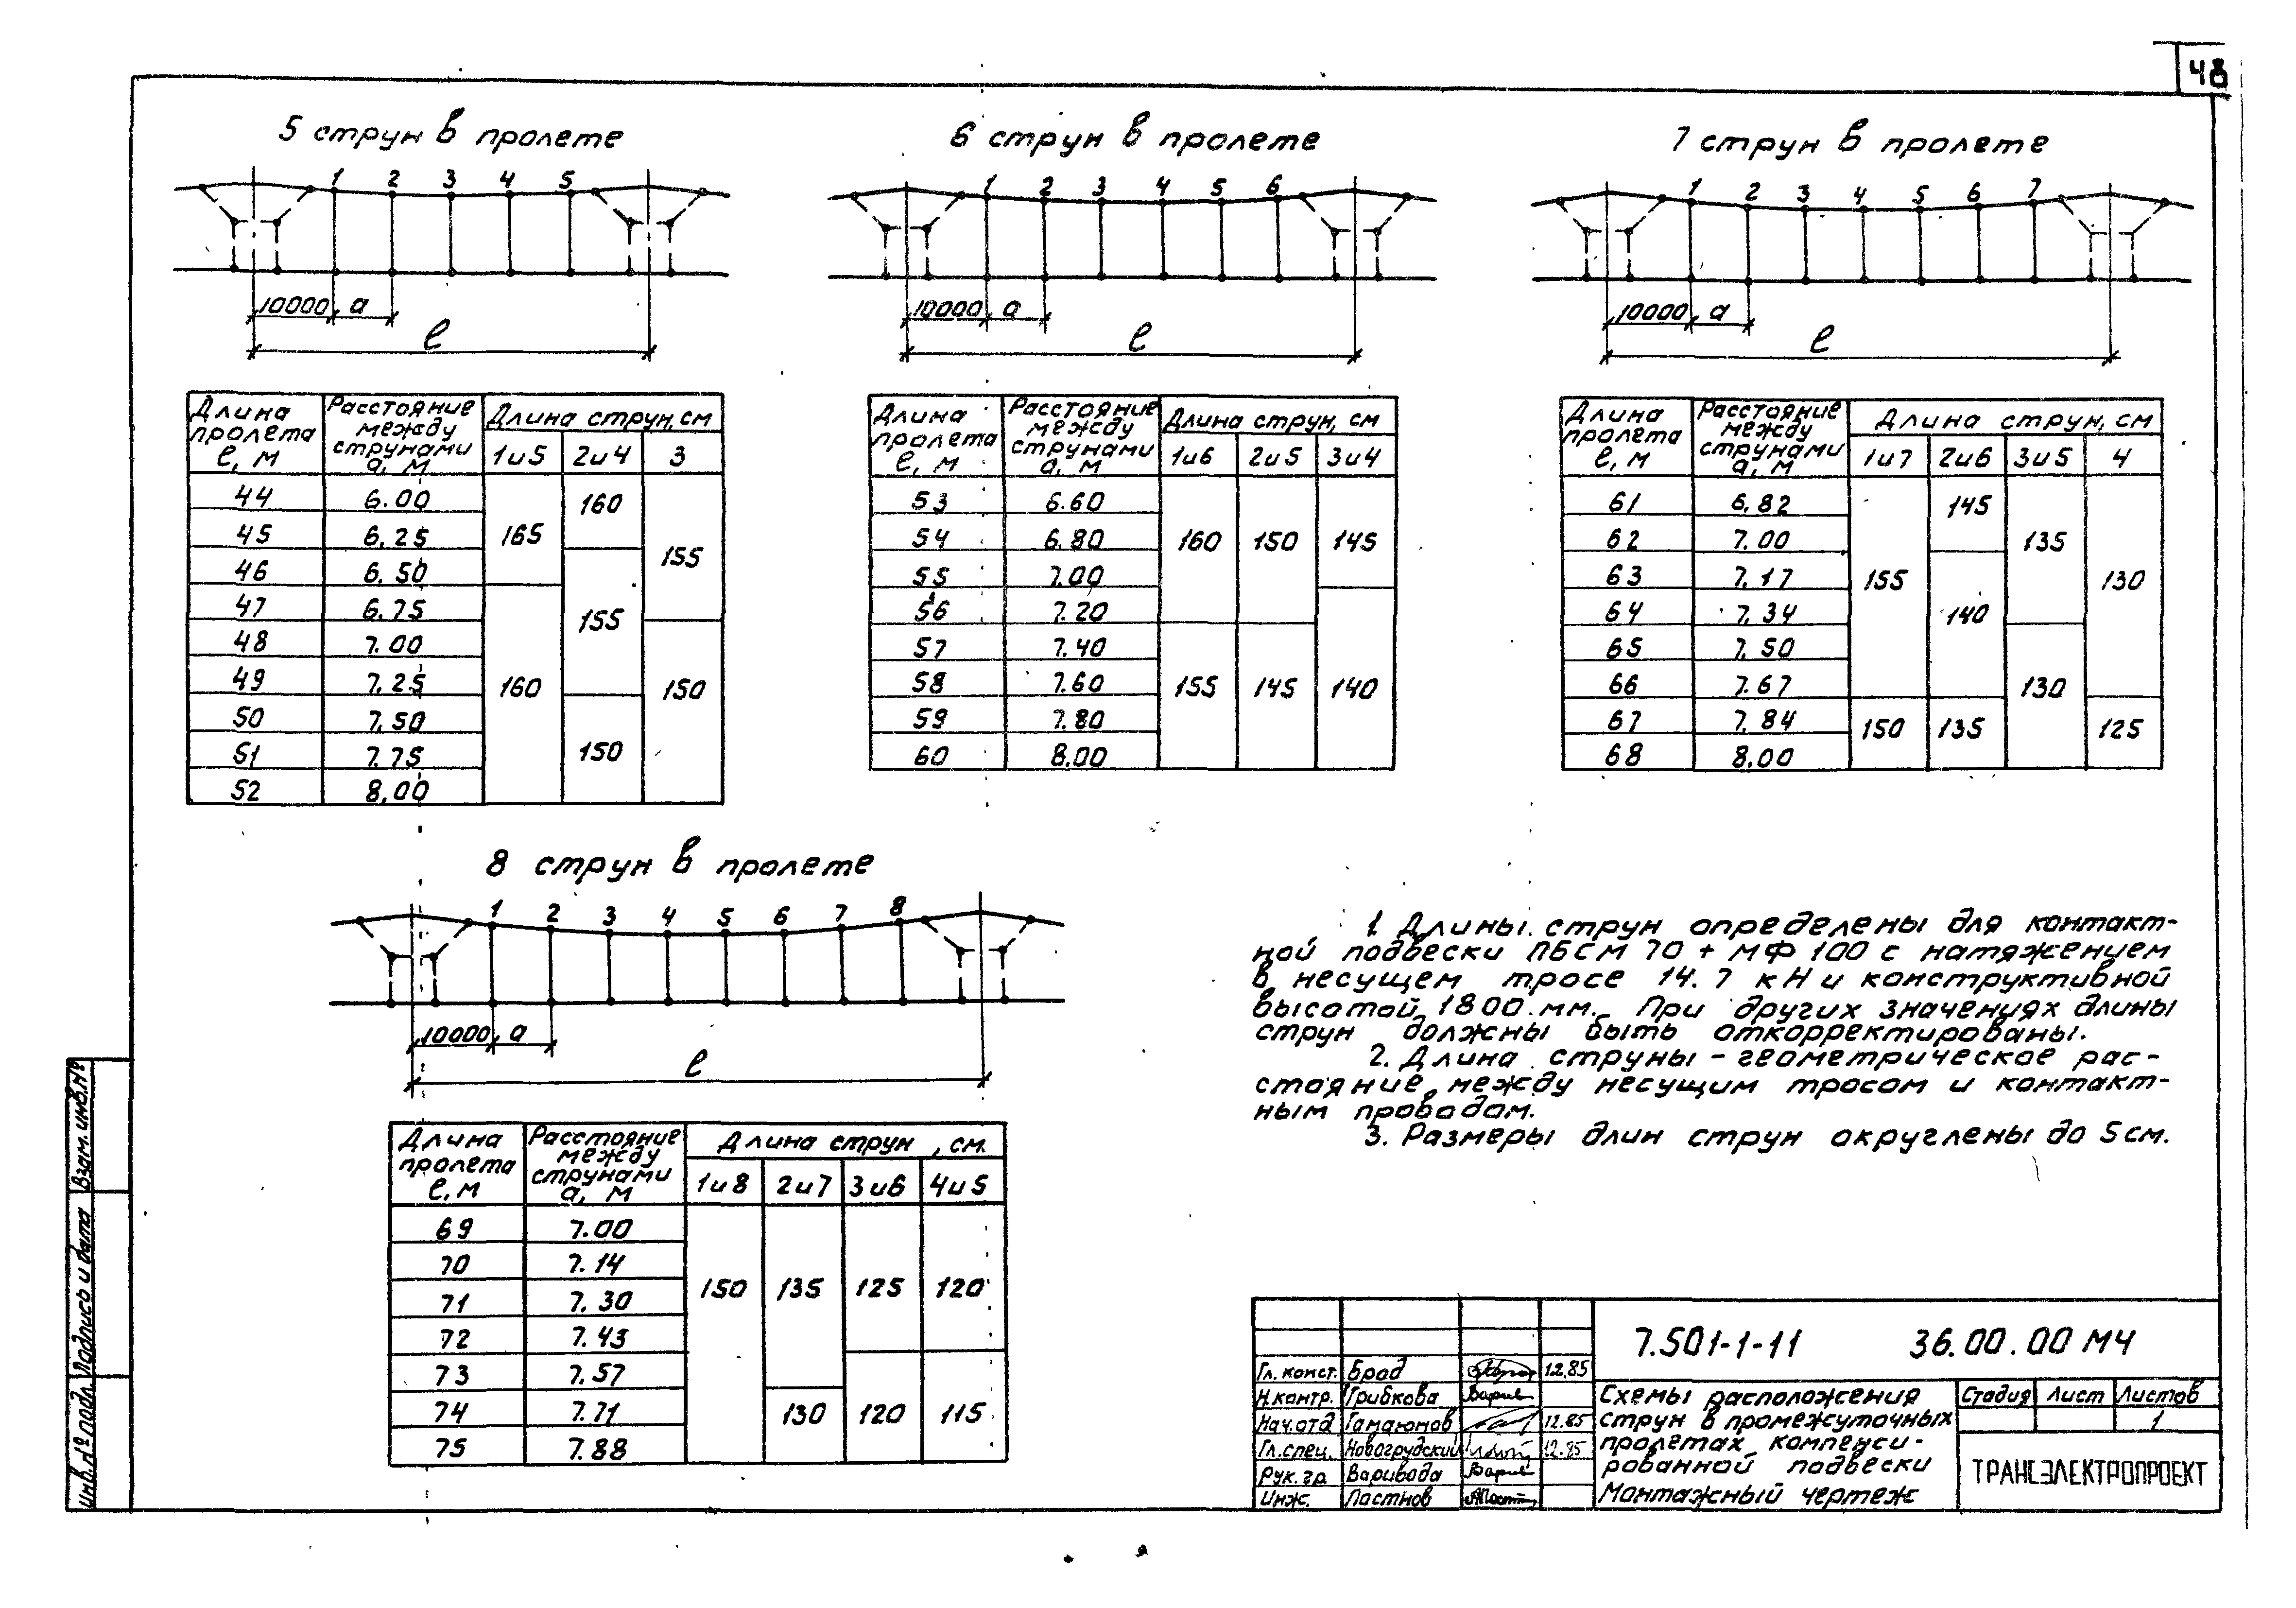 48
5 струн в пролете
1 2 3 4 5
10000 а
ℓ
Длина пролета ℓ, м
Расстояние между струнами а, м
Длина струн, см
1и5 2и4 3
44 6.00
45 6.25
46 6.50
47 6.75
48 7.00
49 7.25
50 7.50
51 7.75
52 8.00
165 160
160 155 150
155 150
6 струн в пролете
1 2 3 4 5 6
10000 а
ℓ
Длина пролета ℓ, м
Расстояние между струнами а, м
Длина струн, см
1и6 2и5 3и4
53 6.60
54 6.80
55 7.00
56 7.20
57 7.40
58 7.60
59 7.80
60 8.00
160 150 145
155 145 140
7 струн в пролете
1 2 3 4 5 6 7
10000 а
ℓ
Длина пролета ℓ, м
Расстояние между струнами а, м
Длина струн, см
1и7 2и6 3и5 4
61 6.82
62 7.00
63 7.17
64 7.34
65 7.50
66 7.67
67 7.84
68 8.00
155 150
145 140 135
135 130
130 125
8 струн в пролете
1 2 3 4 5 6 7 8
10000 а
ℓ
Длина пролета ℓ, м
Расстояние между струнами а, м
Длина струн, см.
1и8 2и7 3и6 4и5
69 7.00
70 7.14
71 7.30
72 7.43
73 7.57
74 7.71
75 7.88
150 135 125 120
130 120 115
1. Длины струн определены для контакт-
ной подвески ПБСМ 70 + МФ 100 с натяжением
в несущем тросе 14.7 кН и конструктивной
высотой 1800 мм. При других значениях длины
струн должны быть откорректированы.
2. Длина струны - геометрическое рас-
стояние между несущим тросом и контакт-
ным проводом.
3. Размеры длин струн округлены до 5см.
7.501-1-11 36.00.00 МЧ
Гл. конст. Брод 12.85
Н.контр. Грибкова
Нач.отд Гамаюнов 12.85
Гл.спец. Новогрудский 12.85
Рук. гр Варивода
Инж. Ластнов
Схемы расположения
струн в промежуточных
пролетах компенси-
рованной подвески
Монтажный чертеж
Стадия Лист Листов
1
ТРАНСЭЛЕКТРОПРОЕКТ
Взам. инв.№
Подпись и дата
Инв.№ подл.